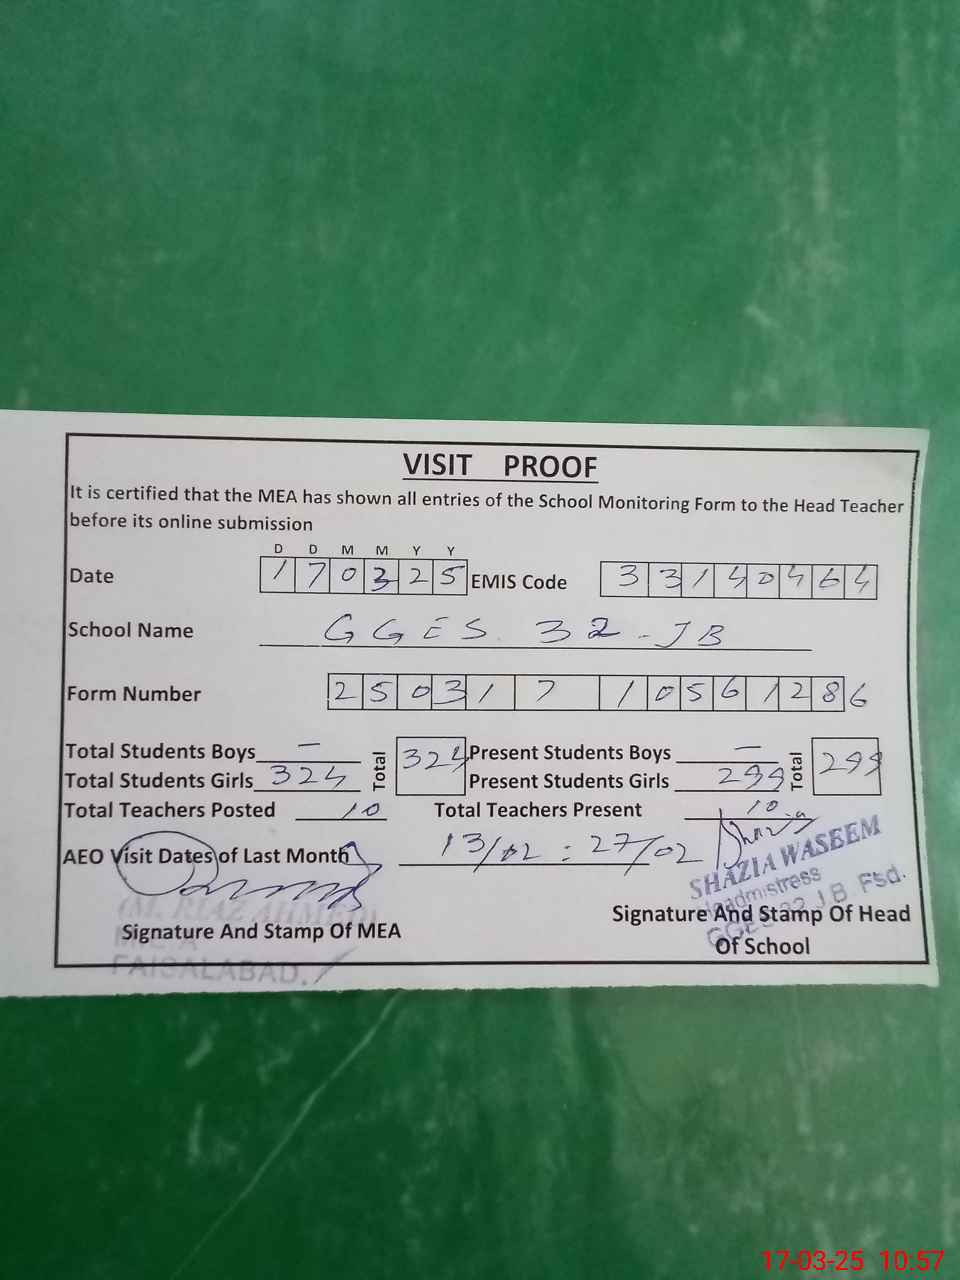 VISIT PROOF
It is certified that the MEA has shown all entries of the School Monitoring Form to the Head Teacher
before its online submission
D D M M Y Y
Date 170325 EMIS Code 33140464
School Name GGES 32-JB
Form Number 25031710561286
Total Students Boys — Total 324 Present Students Boys — Total 299
Total Students Girls 324 Present Students Girls 299
Total Teachers Posted 10 Total Teachers Present 10
AEO Visit Dates of Last Month 13/02 : 27/02 Shazia
SHAZIA WASEEM
Headmistress
GGES 32 J B Fsd.
(M. RIAZ AHMED)
Signature And Stamp Of MEA Signature And Stamp Of Head
Of School
FAISALABAD.
17-03-25 10:57